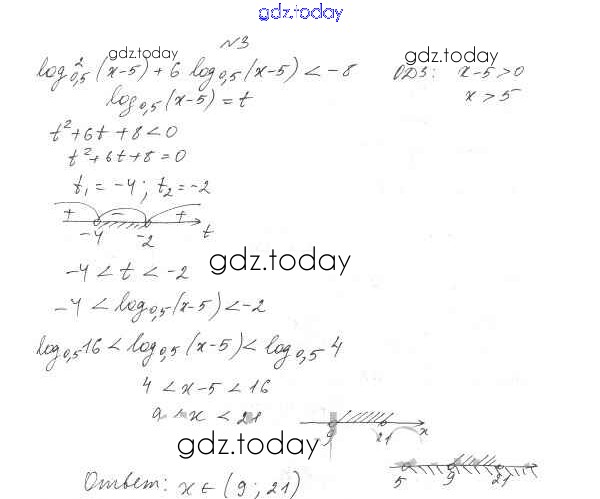 gdz.today
№3
gdz.today gdz.today
log²₀,₅(x-5) + 6 log₀,₅(x-5) < -8 ОДЗ: x-5>0
log₀,₅(x-5) = t x > 5
t² + 6t + 8 < 0
t² + 6t + 8 = 0
t₁ = -4; t₂ = -2
+ - +
-4 -2 t
gdz.today
-4 < t < -2
-4 < log₀,₅(x-5) < -2
log₀,₅16 < log₀,₅(x-5) < log₀,₅4
4 < x-5 < 16
9 < x < 21
9 21 x
gdz.today
5 9 21
Ответ: x ∈ (9; 21)